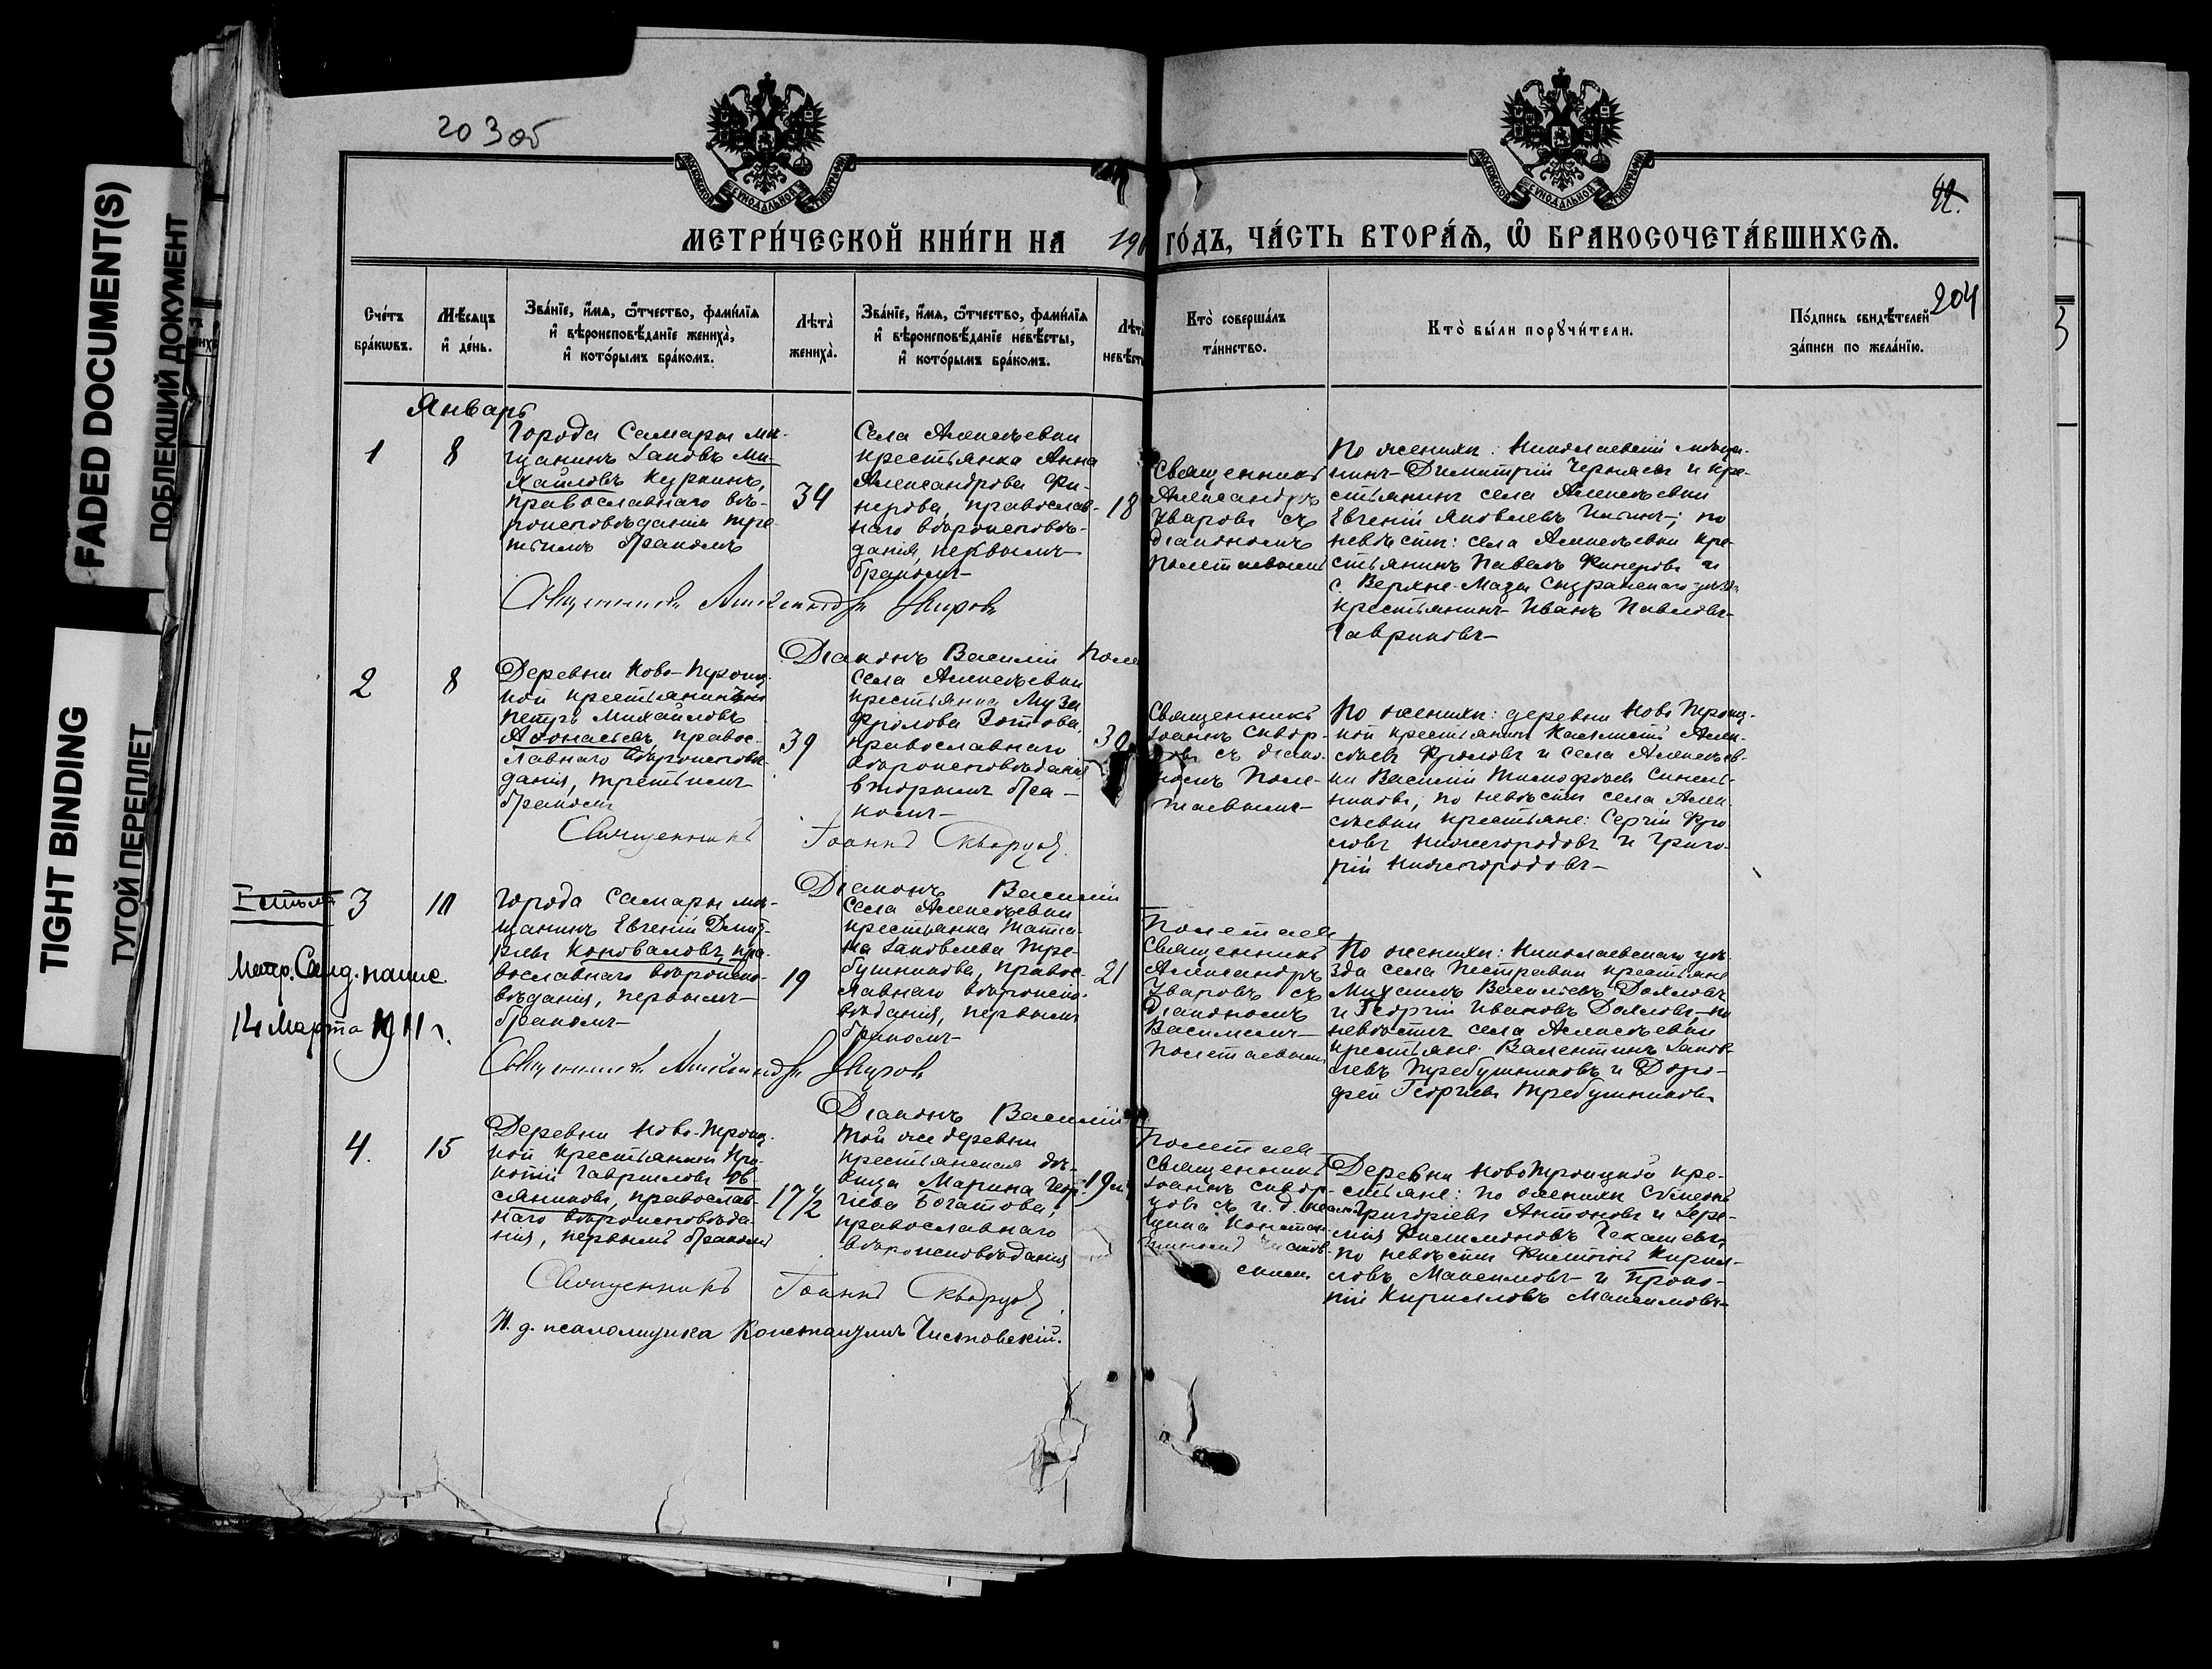 FADED DOCUMENT(S)
ПОБЛЕКШИЙ ДОКУМЕНТ
TIGHT BINDING
ТУГОЙ ПЕРЕПЛЕТ
203 об
МОСКОВСКОЙ СѴНОДАЛЬНОЙ ТИПОГРАФІИ
МОСКОВСКОЙ СѴНОДАЛЬНОЙ ТИПОГРАФІИ
МЕТРИ́ЧЕСКОЙ КНИ́ГИ НА 191
ГО́ДЪ, ЧА́СТЬ ВТОРА́Ѧ, Ѽ БРАКОСОЧЕТА́ВШИХСѦ.
204
Сче́тъ
бра́кѡвъ.
Мѣ́сѧцъ
и҆ де́нь.
Зва́нїе, и҆́мѧ, ѻ҆́тчество, фами́лїѧ
и҆ вѣроисповѣ́данїе жениха̀,
и҆ кото́рымъ бра́комъ.
Лѣта̀
жениха̀.
Зва́нїе, и҆́мѧ, ѻ҆́тчество, фами́лїѧ
и҆ вѣроисповѣ́данїе невѣ́сты,
и҆ кото́рымъ бра́комъ.
Лѣта̀
невѣ́сты
Кто̀ соверша́лъ
та́инство.
Кто̀ бы́ли порꙋчи́тели.
По́дпись свидѣ́телей
за́писи по жела́нїю.
Январь
1
8
Города Самары мѣ-
щанинъ Іаковъ Ми-
хайловъ Куркинъ,
православнаго вѣ-
роисповѣданія тре-
тьимъ бракомъ
34
Села Алексѣевки
крестьянка Анна
Александрова Фи-
нерова, православ-
наго вѣроисповѣ-
данія, первымъ
бракомъ
18
Священникъ
Александръ
Уваровъ съ
діакономъ
Полетаевымъ
По женихѣ: Николаевскій мѣща-
нинъ Димитрій Черняевъ и кре-
стьянинъ села Алексѣевки
Евгеній Яковлевъ; по
невѣстѣ: села Алексѣевки кре-
стьянинъ Павелъ Финеровъ и
с. Верхне-Мазы Сызранскаго уѣзда
крестьянинъ Иванъ Павловъ
Гавриковъ
Священникъ Александръ Уваровъ
Діаконъ Василій Поле
2
8
Деревни Ново-Троиц-
кой крестьянинъ
Петръ Михайловъ
Афонасьевъ, правос-
лавнаго вѣроисповѣ-
данія, третьимъ
бракомъ
39
Села Алексѣевки
крестьянка Муза
Фролова Зотова,
православнаго
вѣроисповѣданія
вторымъ бра-
комъ
30
Священникъ
Іоаннъ Сквор-
цовъ съ діако-
номъ Поле-
таевымъ
По женихѣ: деревни Ново Троиц-
кой крестьянинъ Алек-
сѣевъ Фроловъ и села Алексѣев-
ки Василій Тимофѣевъ Синель-
никовъ, по невѣстѣ села Алек-
сѣевки крестьяне: Сергій Фро-
ловъ Нижегородовъ и Григо-
рій Нижегородовъ
Священникъ Іоаннъ Скворцовъ
Діаконъ Василій
Полетаев
3
10
Города Самары мѣ-
щанинъ Евгеній Дмит-
ріевъ Коноваловъ, пра-
вославнаго вѣроиспо-
вѣданія, первымъ
бракомъ
19
Села Алексѣевки
крестьянка Татья-
на Іаковлева Тре-
бушникова, правос-
лавнаго вѣроиспо-
вѣданія, первымъ
бракомъ
21
Священникъ
Александръ
Уваровъ съ
Діакономъ
Василіемъ
Полетаевымъ
По женихѣ: Николаевскаго уѣ-
зда села Пестравки крестьяне
Михаилъ Васильевъ Дояловъ
и Георгій Ивановъ Дояловъ, по
невѣстѣ села Алексѣевки
крестьяне Валентинъ Іаков-
левъ Требушниковъ и Доро-
фей Георгіевъ Требушниковъ
14 Марта 1911 г.
Священникъ Александръ Уваровъ
Діаконъ Василій
Полетаев
4.
15
Деревни Ново-Троиц-
кой крестьянинъ Про-
копій Гавриловъ Ов-
сянниковъ, православ-
наго вѣроисповѣда-
нія, первымъ бракомъ
17 1/2
Той же деревни
крестьянская дѣ-
вица Марина Геор-
гіева Богатова,
православнаго
вѣроисповѣданія
19
Священникъ
Іоаннъ Сквор-
цовъ съ и. д. псалом-
щика Констан-
тиномъ Чистов-
скимъ
Деревни Ново Троицкой кре-
стьяне: по женихѣ Симеонъ
Григоріевъ Антоновъ и Іере-
мія Филимоновъ Чекашевъ,
по невѣстѣ Филиппъ Кирил-
ловъ Максимовъ и Проко-
пій Кирилловъ Максимовъ
Священникъ Іоаннъ Скворцовъ
И. д. псаломщика Константинъ Чистовскій.